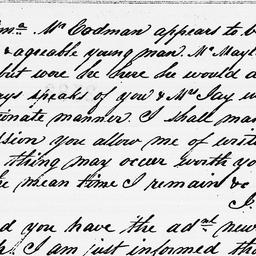 m.a Mr Codman appears to b
& ageable young man. Mr Mayl
bit were he here he would a
ys speaks of you & Mr Jay w
tionate manner. I shall ma
ssion you allow me of writ
thing may occur worth yo
he mean time I remain &c
d you have the ad.nl new
h. I am just informed tha